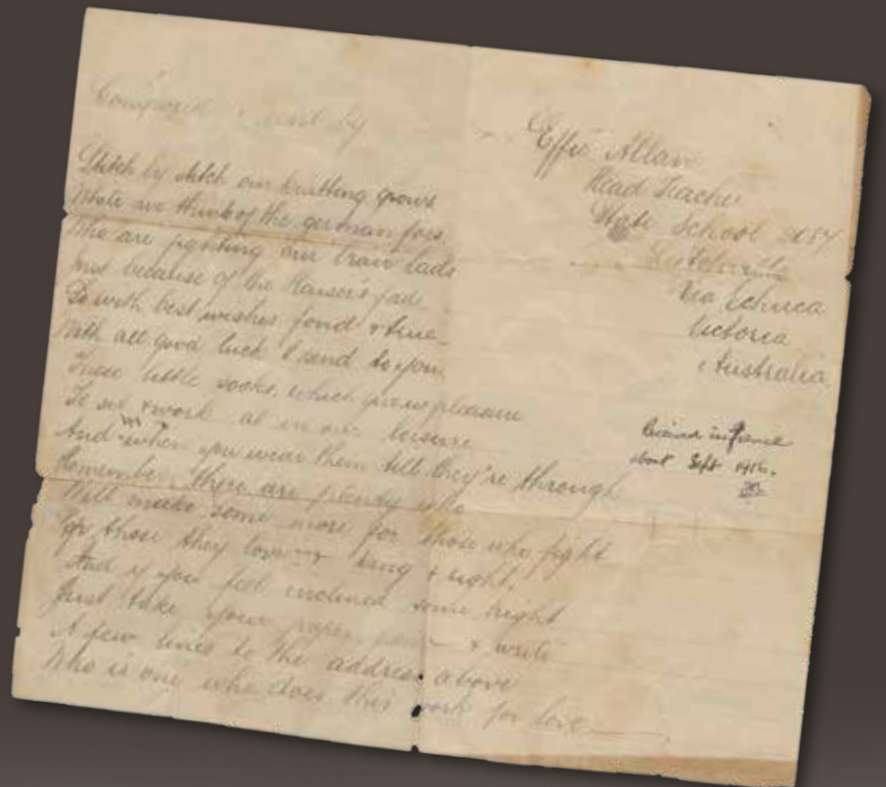 Composed & sent by
Effie Allan
Head Teacher
State School 2057
Via Echuca
Victoria
Australia
Stitch by stitch our knitting grows
While we think of the german foes,
Who are fighting our brave lads
Just because of the Kaiser's fads
So with best wishes fond & true
With all good luck I send to you
These little socks, which give us pleasure
To set & work at in our leisure
And when you wear them till they're through
Remember there are plenty who
Will make some more for those who fight
For those they love king & right.
And if you feel inclined some night
Just take your paper, & write
A few lines to the address above
Who is one who does this work for love
Received in France
about Sept 1916.